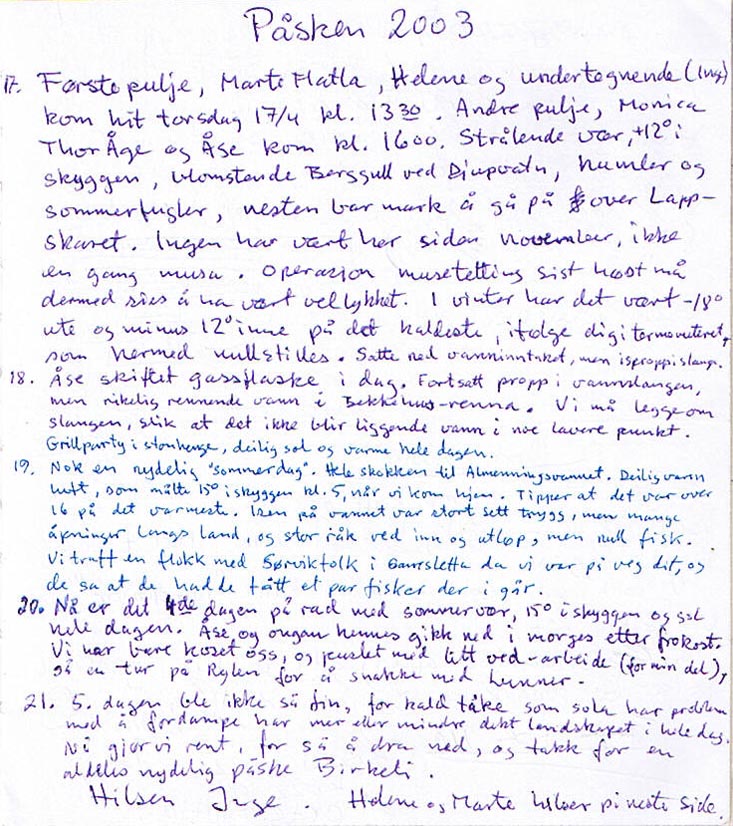 Påsken 2003
17. Første pulje, Marte Flatla, Helene og undertegnende (Inge)
kom hit torsdag 17/4 kl. 1330. Andre pulje, Monica
Thor Åge og Åse kom kl. 1600. Strålende vær, +12° i
skyggen, blomstende Bergsull ved Djupvatn, humler og
sommerfugler, nesten bar mark å gå på over Lapp-
skaret. Ingen har vært her siden november, ikke
en gang musa. Operasjon musetetting sist høst må
dermed sies å ha vært vellykket. I vinter har det vært -18°
ute og minus 12° inne på det kaldeste, ifølge digitermometeret,
som hermed nullstilles. Satte ned vanninntaket, men isproppislange.
18. Åse skiftet gassflaske i dag. Fortsatt propp i vannslangen,
men rikelig rennende vann i Bekkehus-renna. Vi må legge om
slangen, slik at det ikke blir liggende vann i noe lavere punkt.
Grillparty i stonhenge, deilig sol og varme hele dagen.
19. Nok en nydelig "sommerdag". Hele skokken til Almenningsvannet. Deilig varm
luft, som målte 15° i skyggen kl. 5, når vi kom hjem. Tipper at det var over
16 på det varmeste. Isen på vannet var stort sett trygg, men mange
åpninger langs land, og stor råk ved inn og utløp, men null fisk.
Vi traff en flokk med Sørvikfolk i da vi var på veg dit, og
de sa at de hadde fått et par fisker der i går.
20. Nå er det 4de dagen på rad med sommervær, 15° i skyggen og sol
hele dagen. Åse, og ongan hennes gikk ned i morges etter frokost.
Vi har bare koset oss, og puslet med litt ved-arbeide (for min del),
så en tur på for å snakke med
21. 5. dagen ble ikke så fin, for kald tåke som sola har problem
med å fordampe har mer eller mindre dekt landskapet i hele dag.
Nå gjør vi rent, for så å dra ned, og takk for en
aldeles nydelig påske Birkeli.
Hilsen Inge. Helene og Marte hilser på neste side.